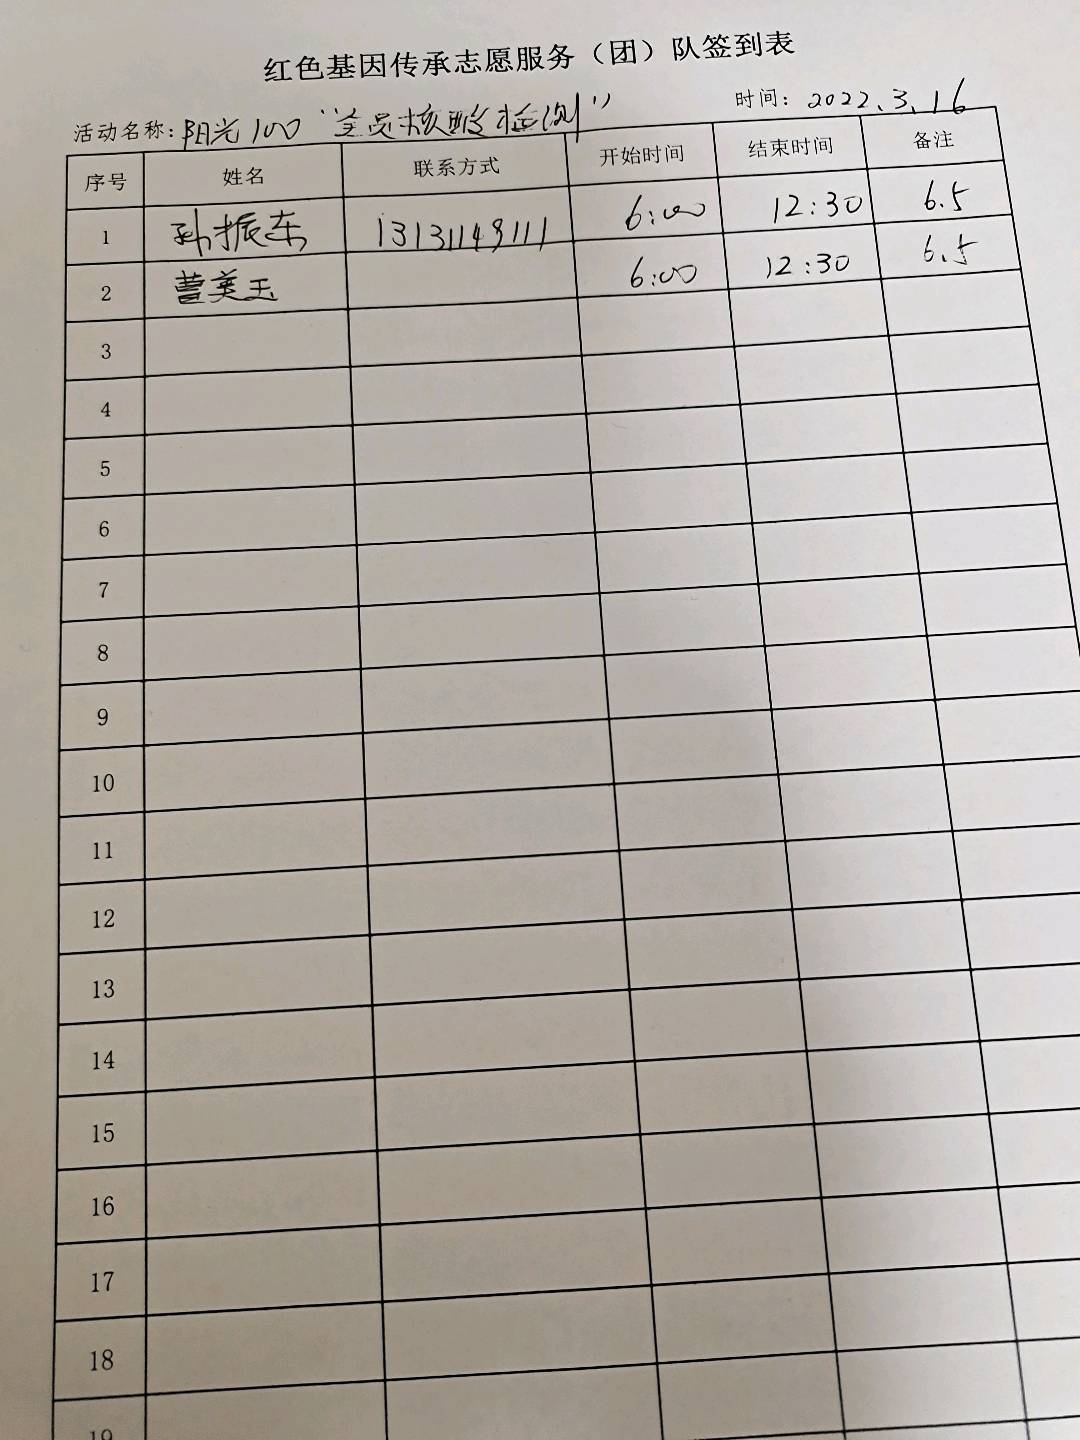 红色基因传承志愿服务（团）队签到表
活动名称：阳光100 "全员核酸检测" 时间：2022.3.16
序号 姓名 联系方式 开始时间 结束时间 备注
1 孙振东 13131149111 6:00 12:30 6.5
2 曹美玉 6:00 12:30 6.5
3
4
5
6
7
8
9
10
11
12
13
14
15
16
17
18
19